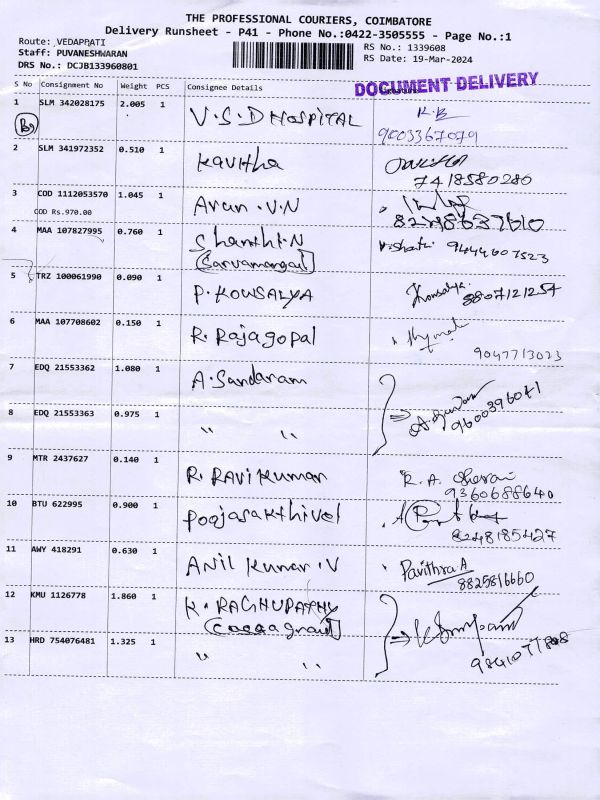 THE PROFESSIONAL COURIERS, COIMBATORE
Delivery Runsheet - P41 - Phone No.:0422-3505555 - Page No.:1
Route: VEDAPPATI
Staff: PUVANESHWARAN
DRS No.: DCJB133960801
RS No.: 1339608
RS Date: 19-Mar-2024
DOCUMENT DELIVERY
S No Consignment No Weight PCS Consignee Details
1 SLM 342028175 2.005 1 V.S.D HOSPITAL K.B
9003367079
2 SLM 341972352 0.510 1 Kavitha
7418580280
3 COD 1112053570 1.045 1 Arun.V.N
COD Rs.970.00
4 MAA 107827995 0.760 1 Shanthi.N V.Shanthi 9444607523
5 TRZ 100061990 0.090 1 P. KOWSALYA Kowsalya 8807121257
6 MAA 107708602 0.150 1 R. Rajagopal
9047713023
7 EDQ 21553362 1.080 1 A. Sandaram
9600396071
8 EDQ 21553363 0.975 1 " "
9 MTR 2437627 0.140 1 R. RAVIKUMAR R.A.
9360688640
10 BTU 622995 0.900 1 Poojasakthivel
8248185427
11 AWY 418291 0.630 1 ANIL Kumar.V Pavithra.A
8825816660
12 KMU 1126778 1.860 1 K. RAGHUPATHY
13 HRD 754076481 1.325 1 " "